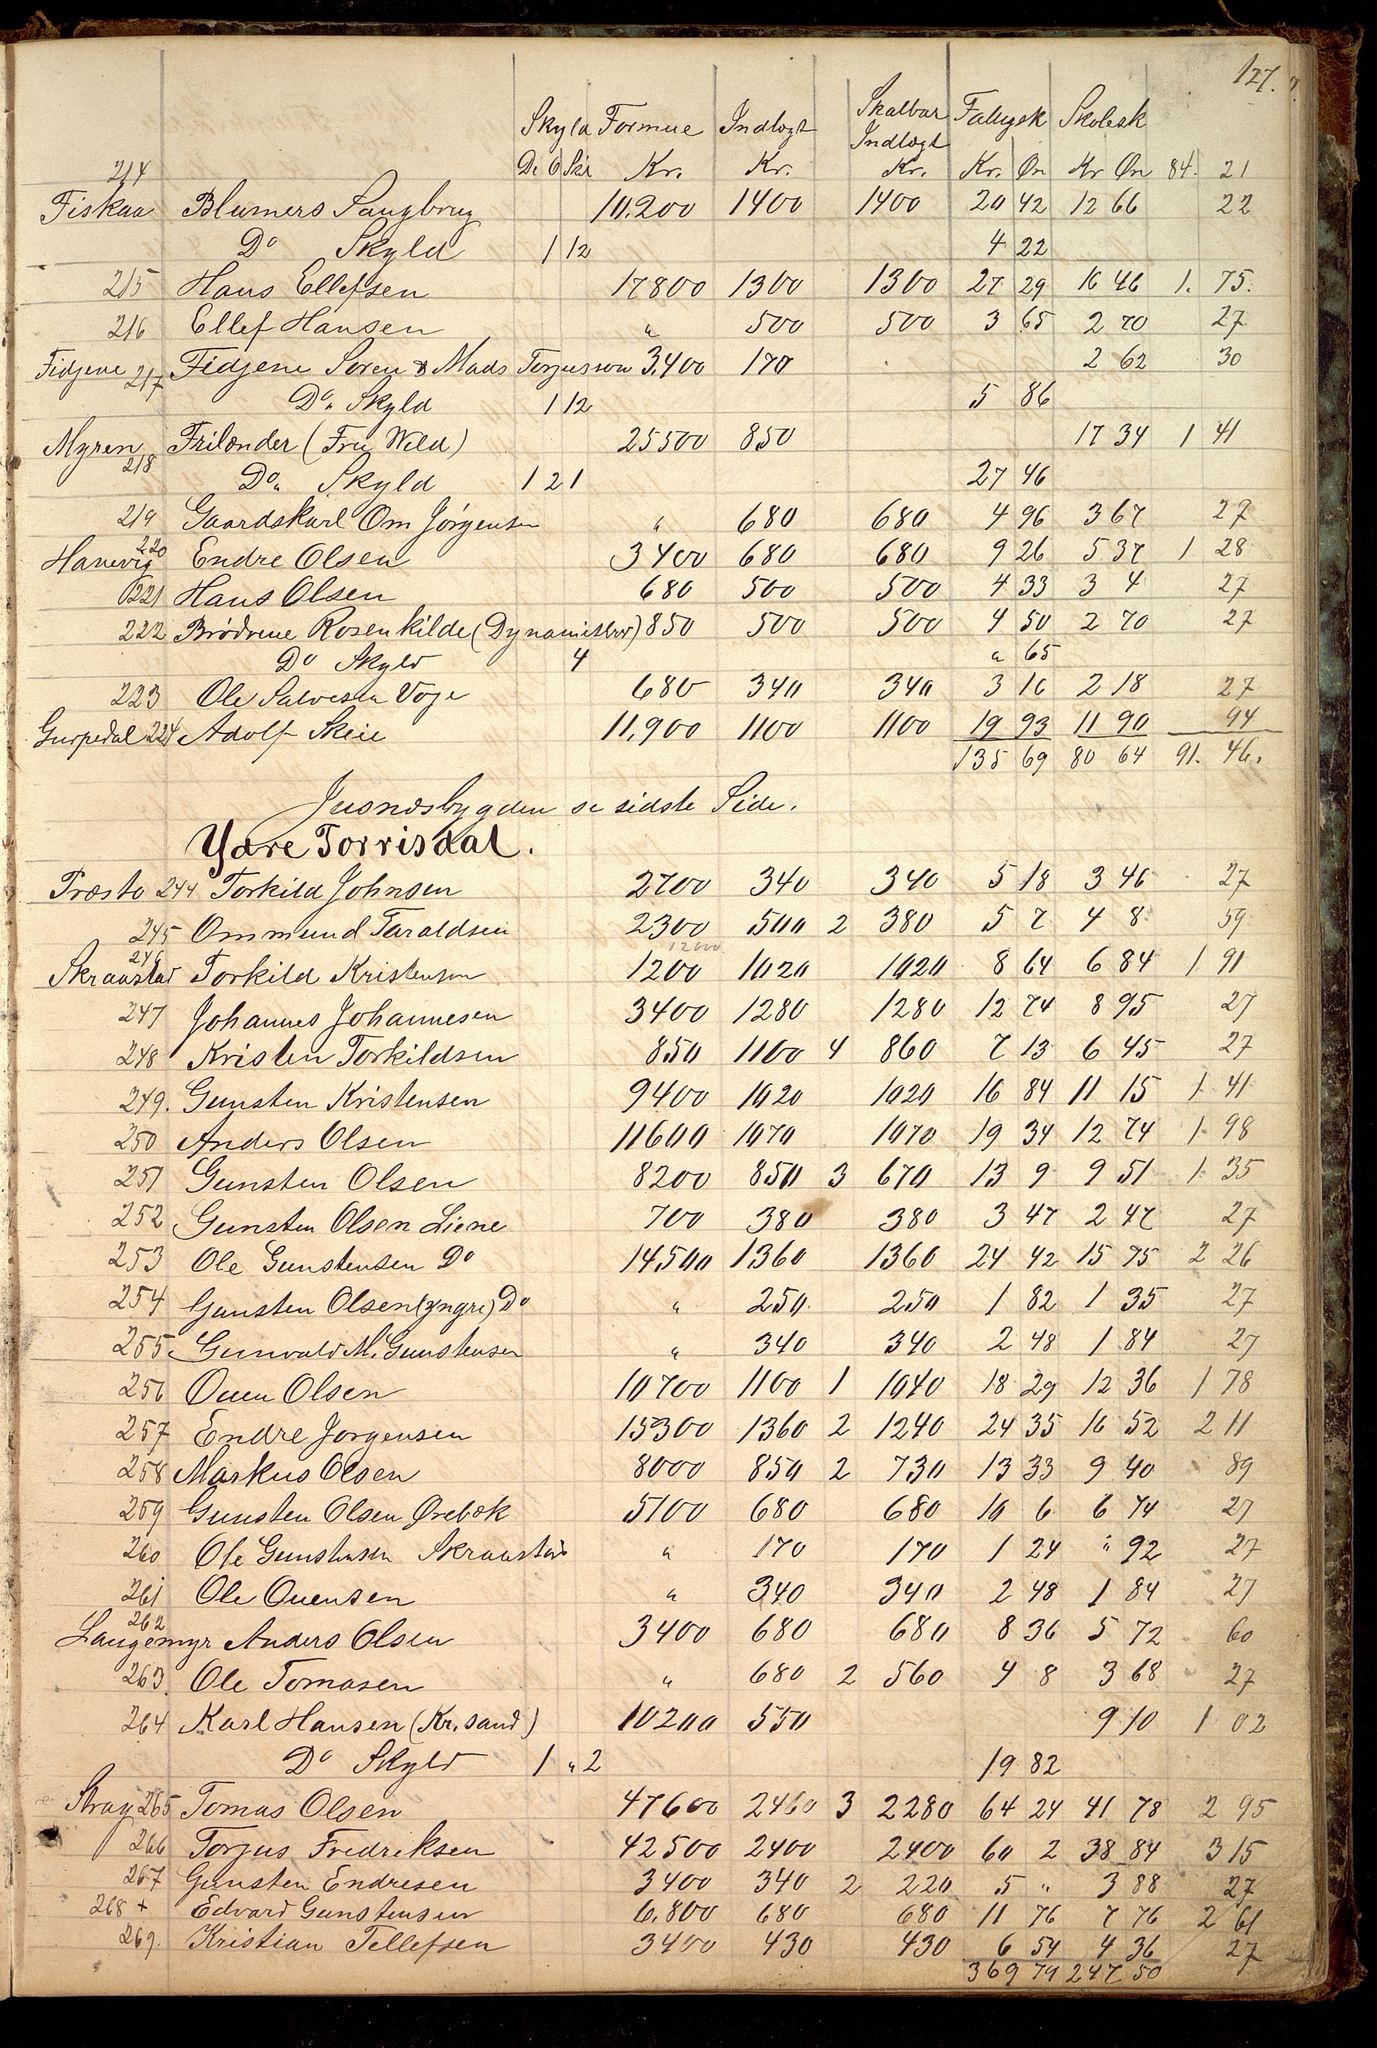 127.
Skyld Formue Indtægt Skatbar Indtægt Fattigsk Skolesk
D. O Sk Kr. Kr. Kr. Kr. Øn Kr Øn 84. 21
214
Fiskaa Blumers Saugbrug 10.200 1400 1400 20 42 12 66 22
Do Skyld 1 12 4 22
215 Hans Ellefsen 17800 1300 1300 27 29 16 46 1. 75.
216 Ellef Hansen " 500 500 3 65 2 70 27
Fidjene 217 Fidjene Søren & Mads Torjusson 3,400 170 2 62 30
Do. Skyld 1 12 5 86
Myren 218 Frilænder (Fru Wild) 25500 850 17 34 1 41
Do. Skyld 1 21 27 46
219 Gaardskarl Om Jørgensen " 680 680 4 96 3 67 27
Hanevig 220 Endre Olsen 3400 680 680 9 26 5 37 1 28
221 Hans Olsen 680 500 500 4 33 3 4 27
222 Brødrene Rosenkilde (Dynamitbrv) 850 500 500 4 50 2 70 27
Do Skyld 4 " 65
223 Ole Salvesen Voje 680 340 340 3 16 2 18 27
Gurpedal 224 Adolf Skeie 11,900 1100 1100 19 93 11 90 94
135 69 80 64 91. 46.
se sidste Side.
Ydre Torrisdal.
Præstø 244 Torkild Johnsen 2700 340 340 5 18 3 46 27
245 Ommund Taraldsen 2300 500 2 380 5 7 4 8 59
12000
Skraastad 246 Torkild Kristensen 1200 1020 1020 8 64 6 84 1 91
247 Johannes Johannesen 3400 1280 1280 12 74 8 95 27
248 Kristen Torkildsen 850 1100 4 860 7 13 6 45 27
249. Gunsten Kristensen 9400 1020 1020 16 84 11 15 1 41
250 Anders Olsen 11600 1070 1070 19 34 12 74 1 98
251 Gunsten Olsen 8200 850 3 670 13 9 9 51 1 35
252 Gunsten Olsen Liene 700 380 380 3 47 2 47 27
253 Ole Gunstensen Do 14500 1360 1360 24 42 15 75 2 26
254 Gunsten Olsen (yngre) Do " 250 250 1 82 1 35 27
255 Gunvald M. Gunstensen " 340 340 2 48 1 84 27
256 Ouen Olsen 10700 1100 1 1040 18 29 12 36 1 78
257 Endre Jørgensen 15300 1360 2 1240 24 35 16 52 2 11
258 Markus Olsen 8000 850 2 730 13 33 9 40 89
259 Gunsten Olsen Ørebæk 5100 680 680 10 6 6 74 27
260 Ole Gunstensen Skraastad " 170 170 1 24 " 92 27
261 Ole Ouensen " 340 340 2 48 1 84 27
262
Langemyr Anders Olsen 3400 680 680 8 36 5 72 60
263. Ole Tomasen " 680 2 560 4 8 3 68 27
264 Karl Hansen (Kr. sand) 10200 550 9 10 1 02
Do Skyld 1 " 2 19 82
Stray 265 Tomas Olsen 47600 2460 3 2280 64 24 41 78 2 95
266 Torjus Fredriksen 42500 2400 2400 60 2 38 84 3 15
267 Gunsten Endresen 3400 340 2 220 5 " 3 88 27
268 + Edvard Gunstensen 6.800 680 680 11 76 7 76 2 61
269. Kristian Tellefsen 3400 430 430 6 54 4 36 27
369 79 247 50